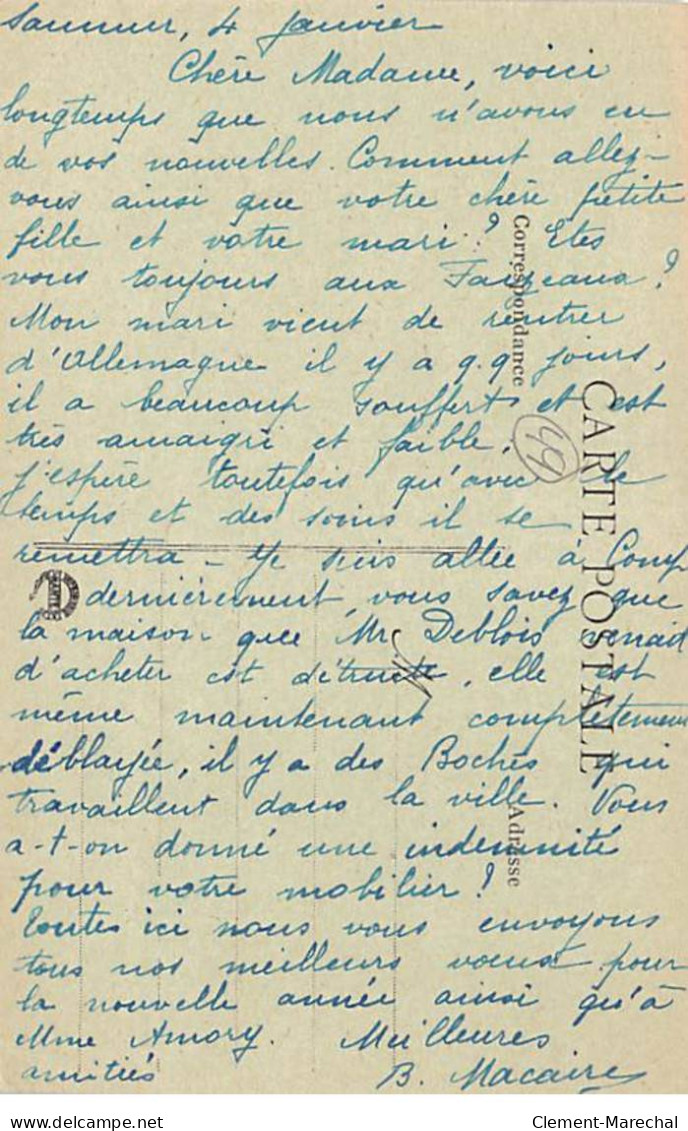 Saumur, 4 Janvier
Chère Madame, voici
longtemps que nous n'avons eu
de vos nouvelles. Comment allez-
vous ainsi que votre chère petite
fille et votre mari ? Etes
vous toujours aux ?
Mon mari vient de rentrer
d'Allemagne il y a q.q jours,
il a beaucoup souffert et est
très amaigri et faible.
J'espère toutefois qu'avec le
temps et des soins il se
remettra - Je suis allée à Comp
dernièrement, vous savez que
la maison que Mr Deblois venait
d'acheter est détruite, elle est
même maintenant complètement
déblayée, il y a des Boches qui
travaillent dans la ville. Vous
a-t-on donné une indemnité
pour votre mobilier ?
Toutes ici nous vous envoyons
tous nos meilleurs vœux pour
la nouvelle année ainsi qu'à
Mme Amory. Meilleures
amitiés B. Macaire
Correspondance
CARTE POSTALE
Adresse
49
M
Clement-Marechal